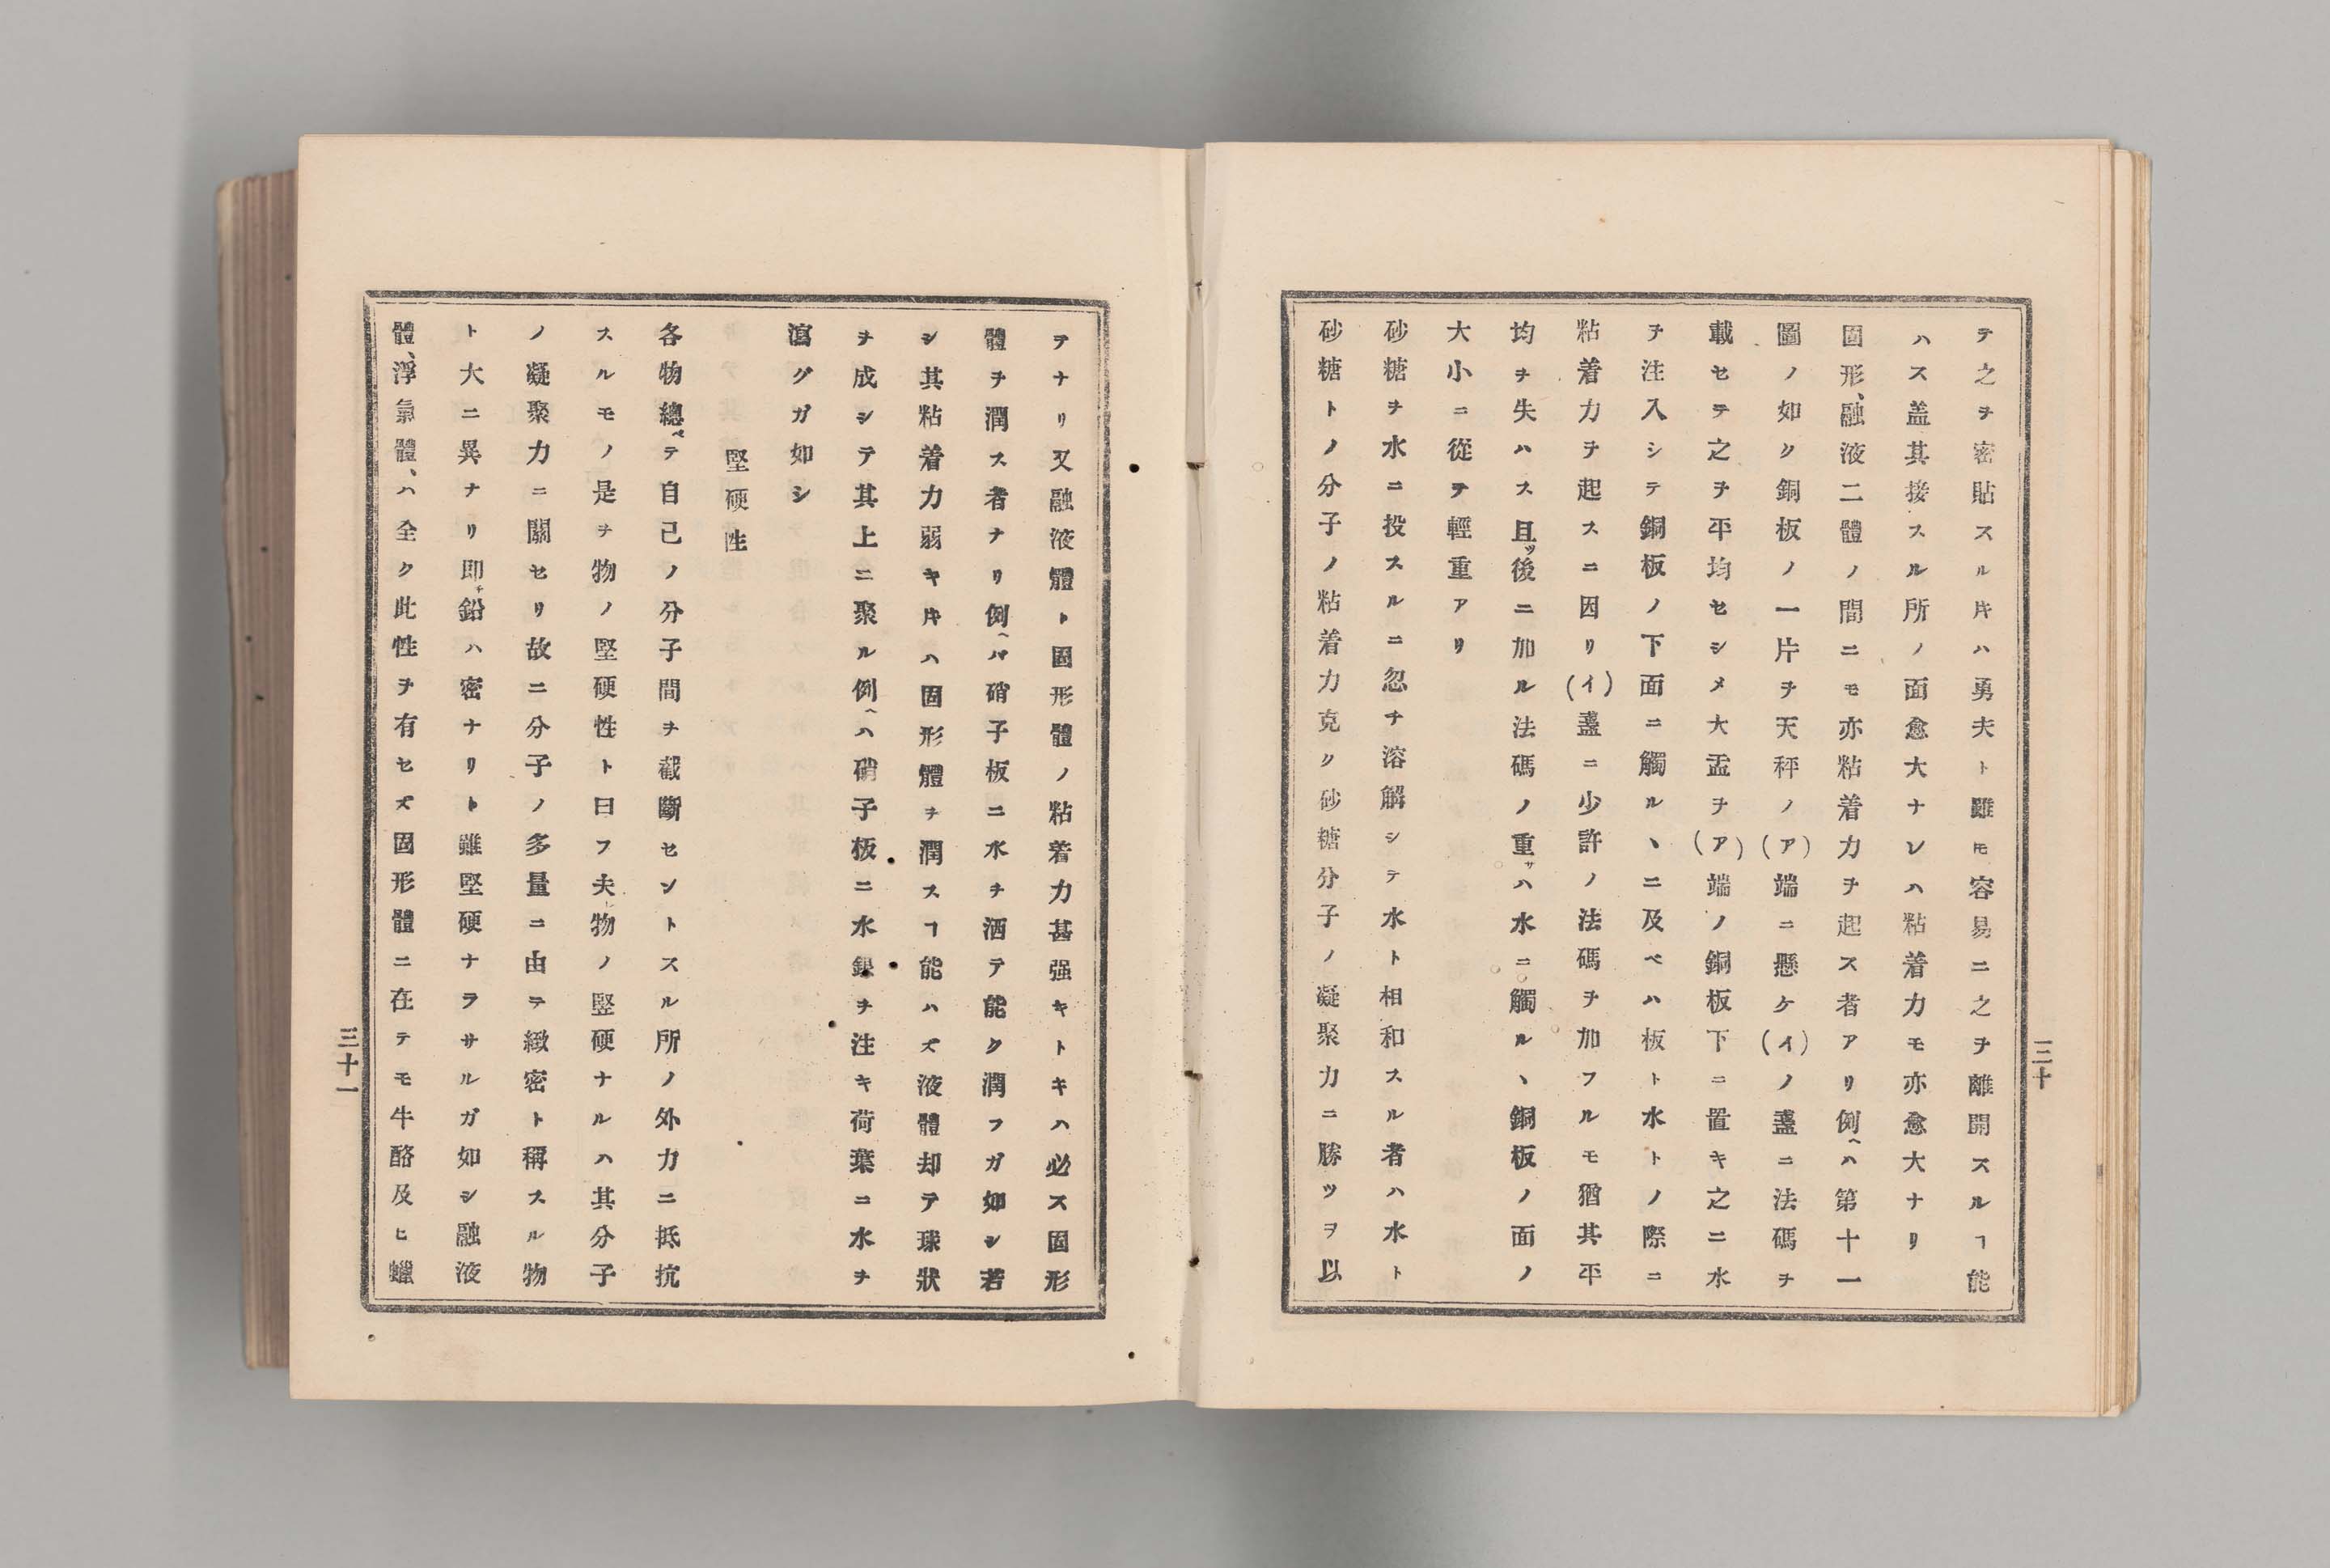 テ之ヲ密貼スル𪜈ハ勇夫ト雖𪜈容易ニ之ヲ離開スルヿ能
ハス盖其接スル所ノ面愈大ナレハ粘着力モ亦愈大ナリ
固形、融液二體ノ間ニモ亦粘着力ヲ起ス者アリ例ヘハ第十一
圖ノ如ク銅板ノ一片ヲ天秤ノ(ア)端ニ懸ケ(イ)ノ盞ニ法碼ヲ
載セテ之ヲ平均セシメ大盂ヲ(ア)端ノ銅板下ニ置キ之ニ水
ヲ注入シテ銅板ノ下面ニ觸ルヽニ及ベハ板ト水トノ際ニ
粘着力ヲ起スニ因リ(イ)盞ニ少許ノ法碼ヲ加フルモ猶其平
均ヲ失ハス且ツ後ニ加ル法碼ノ重サハ水ニ觸ルヽ銅板ノ面ノ
大小ニ從テ輕重アリ
砂糖ヲ水ニ投スルニ忽チ溶解シテ水ト相和スル者ハ水ト
砂糖トノ分子ノ粘着力克ク砂糖分子ノ凝聚力ニ勝ツヲ以
三十
テナリ又融液體ト固形體ノ粘着力甚强キトキハ必ス固形
體ヲ潤ス者ナリ例ヘハ硝子板ニ水ヲ洒テ能ク潤フガ如シ若
シ其粘着力弱キ𪜈ハ固形體ヲ潤スヿ能ハズ液體却テ球狀
ヲ成シテ其上ニ聚ル例ヘハ硝子板ニ水銀ヲ注キ荷葉ニ水ヲ
瀉グガ如シ
堅硬性
各物總ベテ自己ノ分子間ヲ截斷セントスル所ノ外力ニ抵抗
スルモノ是ヲ物ノ堅硬性ト曰フ夫物ノ堅硬ナルハ其分子
ノ凝聚力ニ關セリ故ニ分子ノ多量ニ由テ緻密ト稱スル物
ト大ニ異ナリ即チ鉛ハ密ナリト雖堅硬ナラサルガ如シ融液
體、浮氣體、ハ全ク此性ヲ有セズ固形體ニ在テモ牛酪及ヒ蠟
三十一